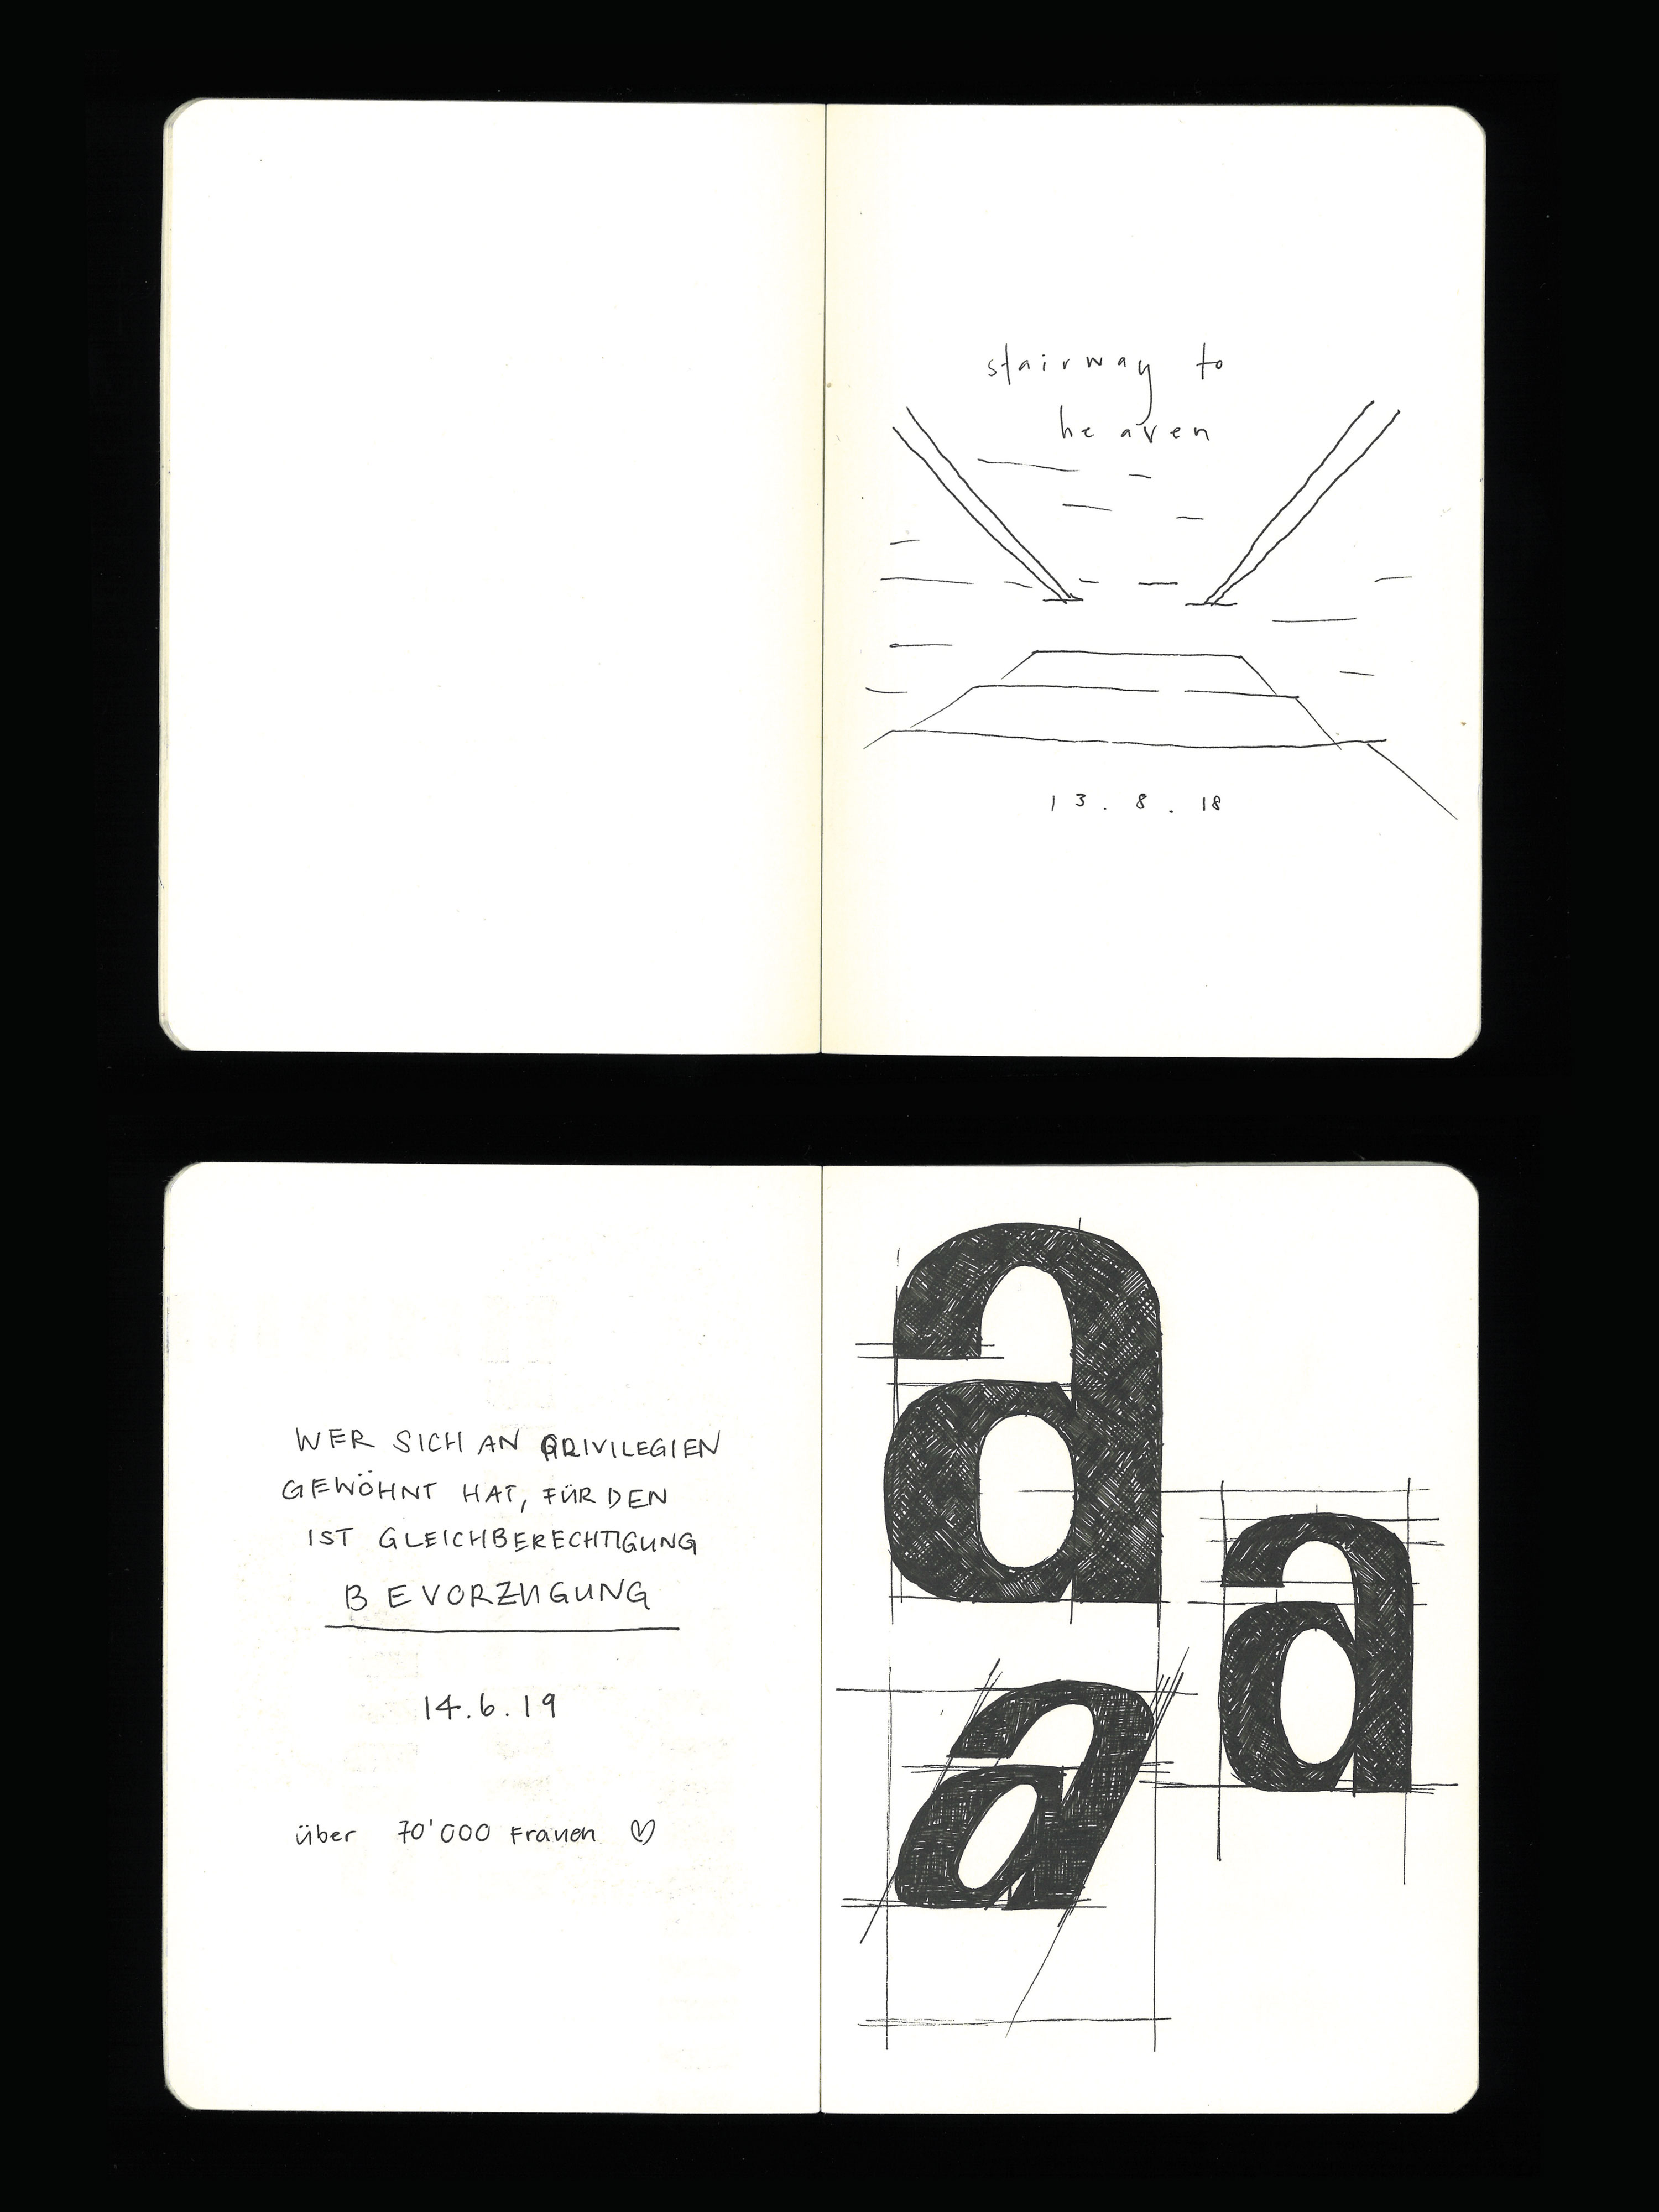 stairway to
heaven
13.8.18
WER SICH AN PRIVILEGIEN
GEWÖHNT HAT, FÜR DEN
IST GLEICHBERECHTIGUNG
BEVORZUGUNG
14.6.19
über 70'000 Frauen ♡
a
a
a